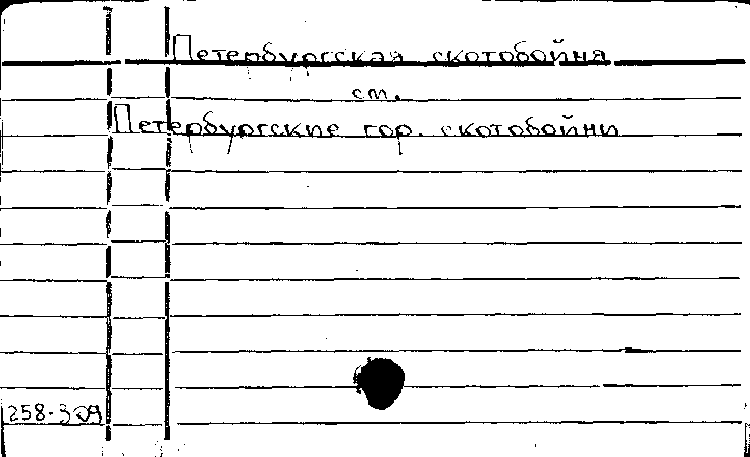 Петербургская скотобойня
см.
Петербургские гор. скотобойни